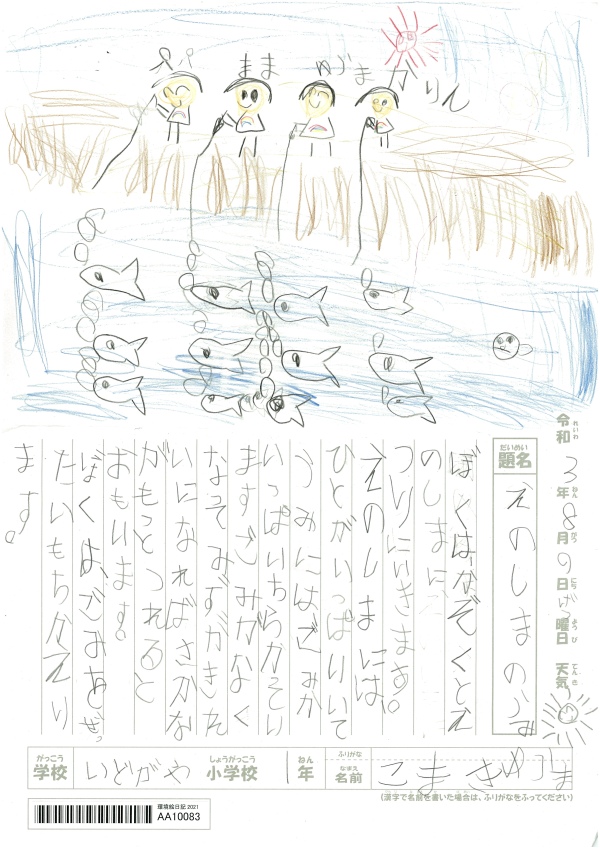 パパ まま ゆうま かりん
令和3年8月9日げつ曜日 天気
れいわ ねん がつ にち ようび てんき
だいめい
題名 えのしまのうみ
ぼくは、かぞくとえ
のしまに、
つりにいきます。
えのしまには、
ひとがいっぱいいて
うみにはごみが
いっぱいちらかってい
ますごみがなく
なってみずがきれ
いになればさかな
がもっとつれると
おもいます。
ぼくは、ごみおぜっ
たいもちかえり
ます。
がっこう しょうがっこう ねん ふりがな なまえ
学校 いどがや 小学校 1年 名前 こまき ゆうま
(漢字で名前を書いた場合は、ふりがなをふってください)
環境絵日記 2021
AA10083